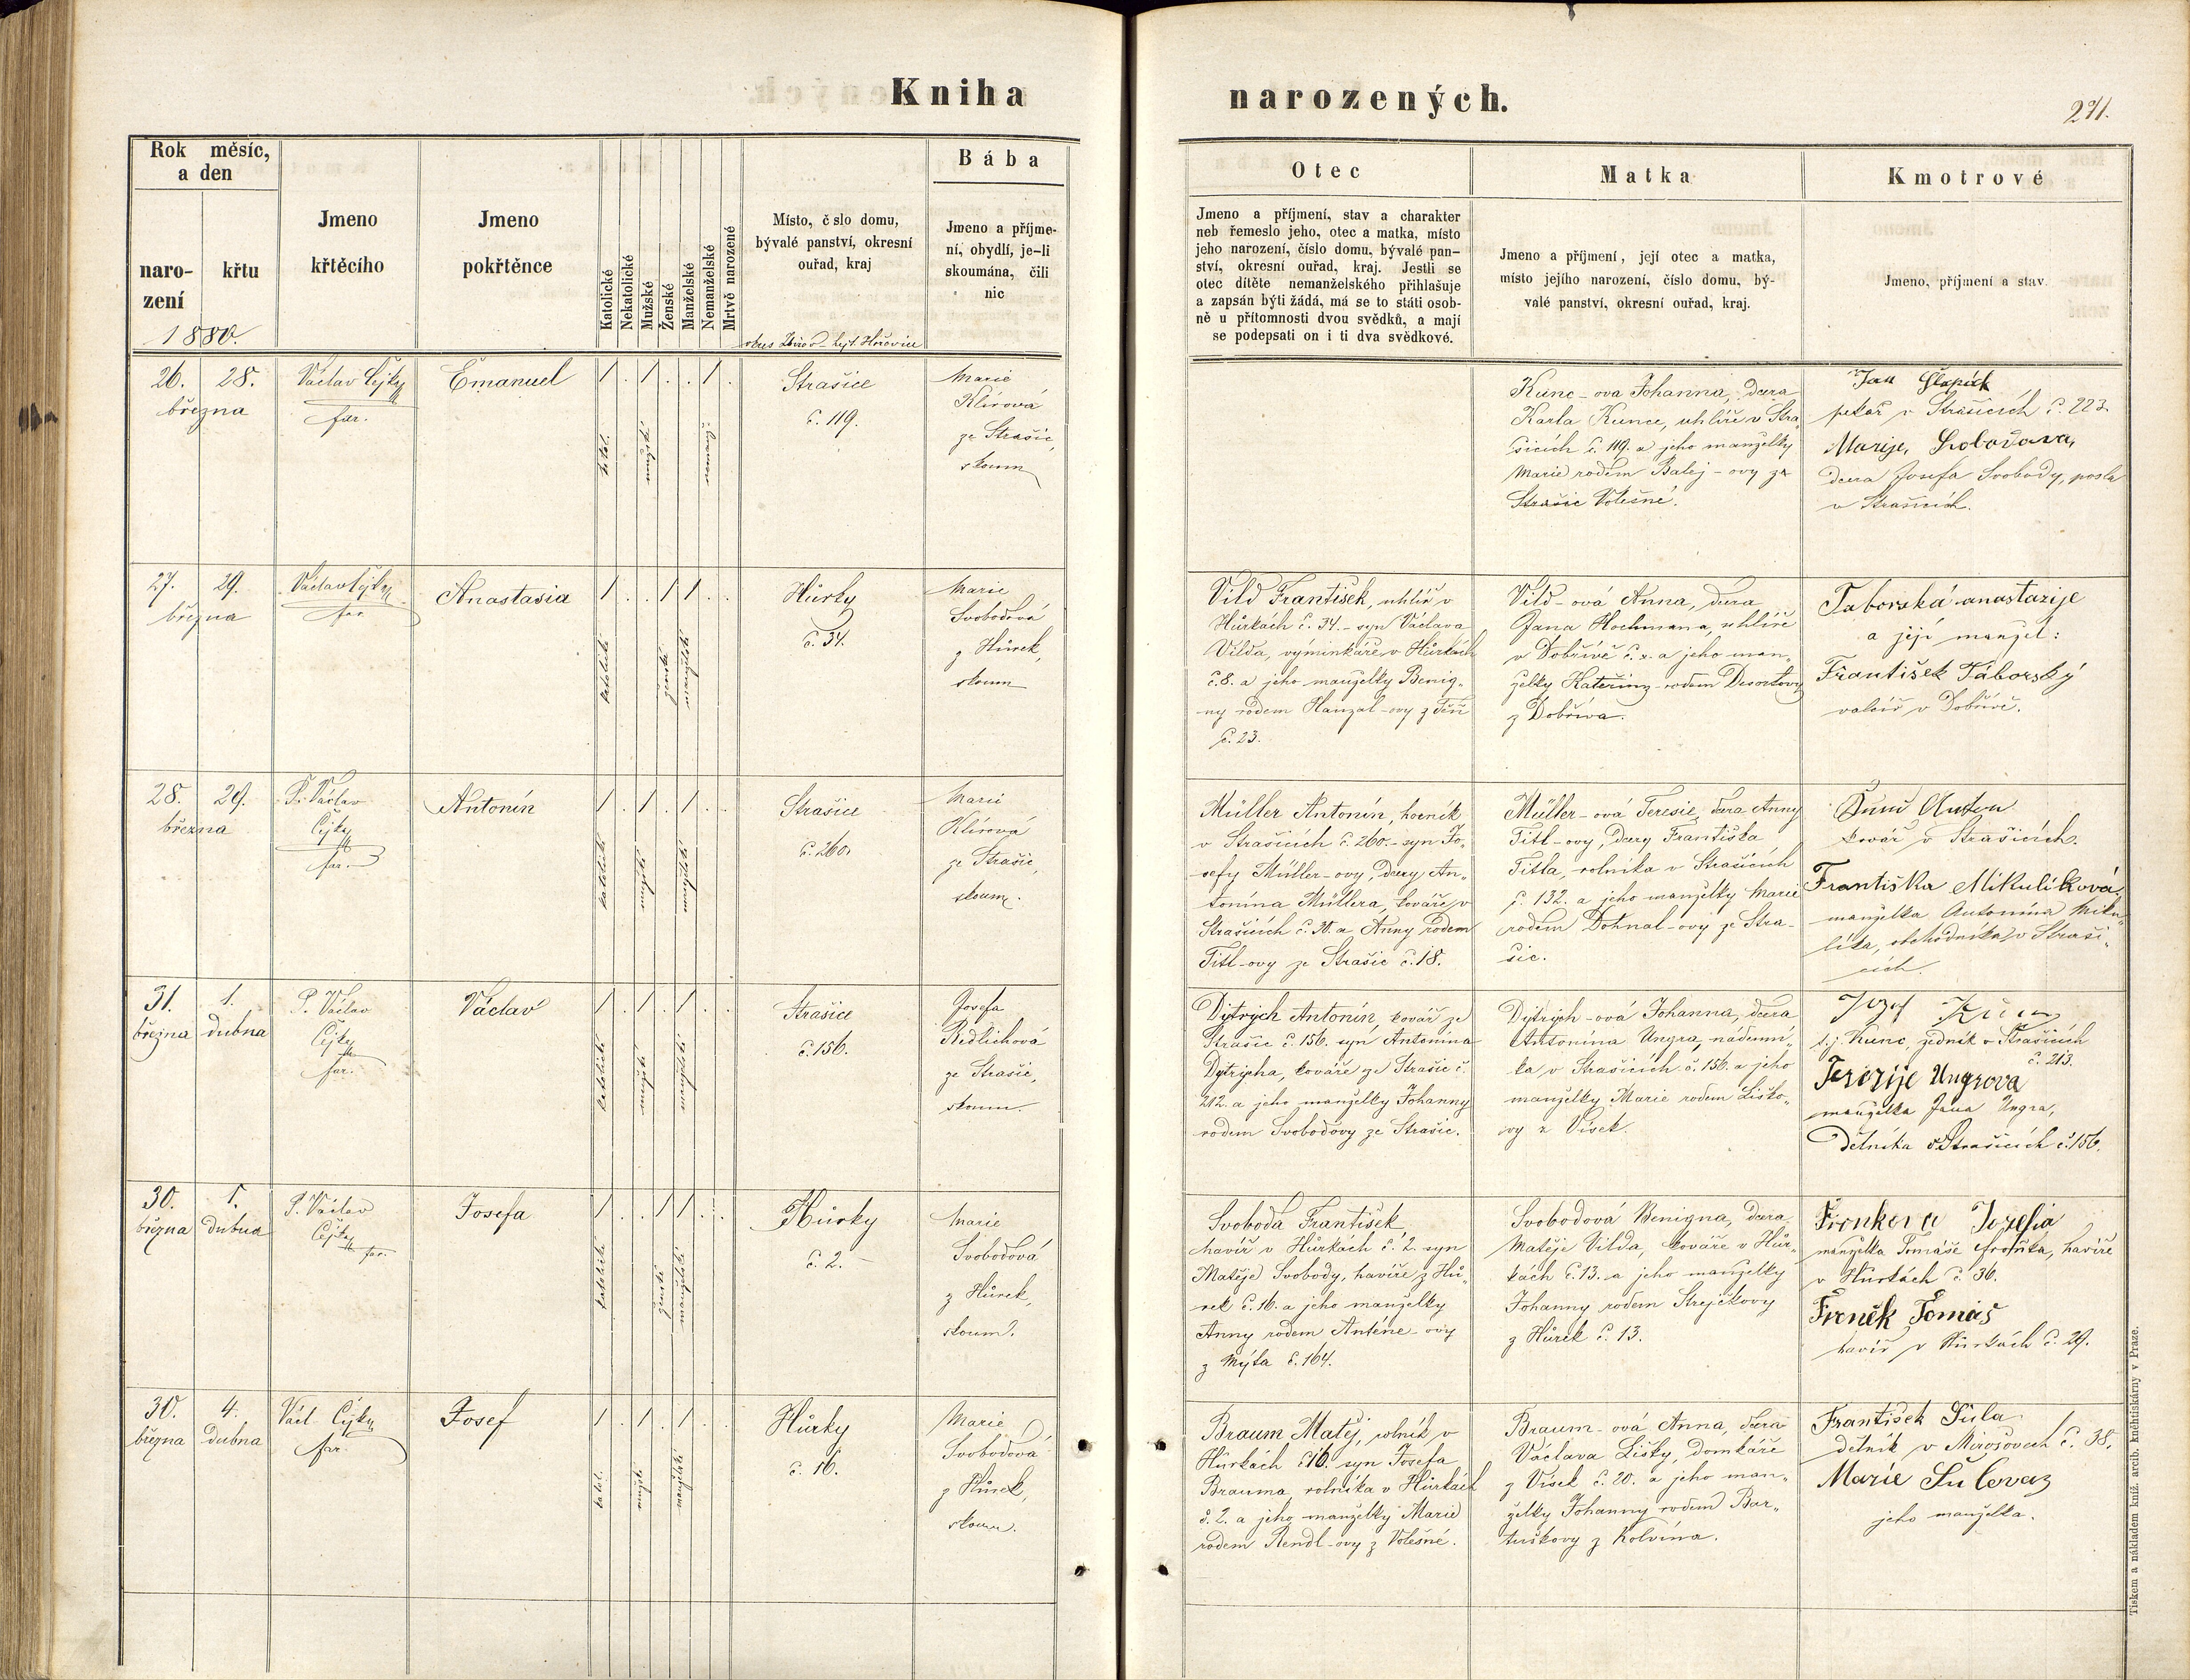 Kniha
narozených.
271.
Rok měsíc,
a den
naro-
zení
křtu
1880.
Jmeno
křtěcího
Jmeno
pokřtěnce
Katolické
Nekatolické
Mužské
Ženské
Manželské
Nemanželské
Mrtvě narozené
Místo, č slo domu,
bývalé panství, okresní
ouřad, kraj
okres Zbirov hejt. Hořovice
Bába
Jmeno a příjme-
ní, obydlí, je-li
skoumána, čili
nic
Otec
Jmeno a příjmení, stav a charakter
neb řemeslo jeho, otec a matka, místo
jeho narození, číslo domu, bývalé pan-
ství, okresní ouřad, kraj. Jestli se
otec dítěte nemanželského přihlašuje
a zapsán býti žádá, má se to státi osob-
ně u přítomnosti dvou svědků, a mají
se podepsati on i ti dva svědkové.
Matka
Jmeno a příjmení, její otec a matka,
místo jejího narození, číslo domu, bý-
valé panství, okresní ouřad, kraj.
Kmotrové
Jmeno, příjmení a stav.
26. 28.
března
Václav Čejka
far.
Emanuel
Strašice
č. 119.
Marie
Klírová
ze Strašic,
skoum
Kunc-ova Johanna, dcera
Karla Kunce, uhlíře v Stra
šicích č. 119. a jeho manželky
Marie rodem Balej-ovy ze
Strašic Volešné.
Jan
pekař v Strašicích č. 223.
Marije
dcera Josefa Svobody, posla
v Strašicích.
27. 29.
března
Václav Čejka
far.
Anastasia
katolické
ženské
Hůrky
č. 34.
Marie
Svobodová
z Hůrek,
skoum
Vild František, uhlíř v
Hůrkách č. 34.- syn Václava
Vilda, výminkáře v Hůrkách
č. 8. a jeho manželky Benig-
ny rodem Hanzal-ovy z Těň
č. 23.
Vild-ová Anna, dcera
Jana Hochmana, uhlíře
v Dobřívě č. x. a jeho man-
želky Kateřiny rodem Desortovy
z Dobříva.
Taborská anastazije
a její manžel:
František Táborský
valcíř v Dobřívě.
28. 29.
března
P. Václav
Čejka
far.
Antonín
katolické
Strašice
č. 260.
Marie
Klírová
ze Strašic,
skoum.
Müller Antonín, horník
v Strašicích č. 260.- syn Jo-
sefy Müller-ovy, dcery An-
tonína Müllera, kováře v
Strašicích č. 30. a Anny rodem
Titl-ovy ze Strašic č. 18.
Müller-ová Teresie, dcera Anny
Titl-ovy, dcery Františka
Titla, rolníka v Strašicích
č. 132. a jeho manželky Marie
rodem Dohnal-ovy ze Stra-
šic.
Anton
kovář v Strašicích.
Františka Mikulíková
manželka Antonína Miku-
líka, obchodníka v Straši-
cích.
31. 1.
března dubna
P. Václav
Čejka
far.
Václav
katolické
Strašice
č. 156.
Josefa
Redlichová
ze Strašic,
skoum.
Dytrych Antonín, kovář ze
Strašic č. 156. syn Antonína
Dytrycha, kováře ze Strašic č.
212. a jeho manželky Johanny
rodem Svobodovy ze Strašic.
Dytrych-ová Johanna, dcera
Antonína Ungra, nádenní-
ka v Strašicích č. 156. a jeho
manželky Marie rodem Liško-
vy z Vísek.
Jozef Kunc
t.j. Kunc, zedník v Strašicích
č. 213.
Terezije Ungrova
manželka Jana Ungra,
dělníka v Strašicích č. 156.
30. 1.
března dubna
P. Václav
Čejka
far.
Josefa
katolické
ženské
Hůrky
č. 2.
Marie
Svobodová
z Hůrek,
skoum.
Svoboda František
havíř v Hůrkách č. 2. syn
Matěje Svobody, havíře z Hů-
rek č. 16. a jeho manželky
Anny rodem Antone-ovy
z Mýta č. 164.
Svobodová Benigna, dcera
Matěje Vilda, kováře v Hůr-
kách č. 13. a jeho manželky
Johanny rodem Strejčkovy
z Hůrek č. 13.
Fronkova Jozefia
manželka Tomáše Froňka, havíře
v Hůrkách č. 36.
Froněk Tomáš
havíř v Hůrkách č. 29.
30. 4.
března dubna
Václ. Čejka
far.
Josef
katol.
Hůrky
č. 16.
Marie
Svobodová
z Hůrek,
skoum.
Braum Matěj, rolník v
Hůrkách č. 16. syn Josefa
Brauma, rolníka v Hůrkách
č. 2. a jeho manželky Marie
rodem Rendl-ovy z Volešné.
Braum-ová Anna, dcera
Václava Lišky, domkáře
z Vísek č. 20. a jeho man-
želky Johanny rodem Bar-
tuškovy z Kolvína.
František Šula
dělník v Mirošovech č. 38.
Marie Šulova
jeho manželka.
Tiskem a nákladem kníž. arcib. knihtiskárny v Praze.